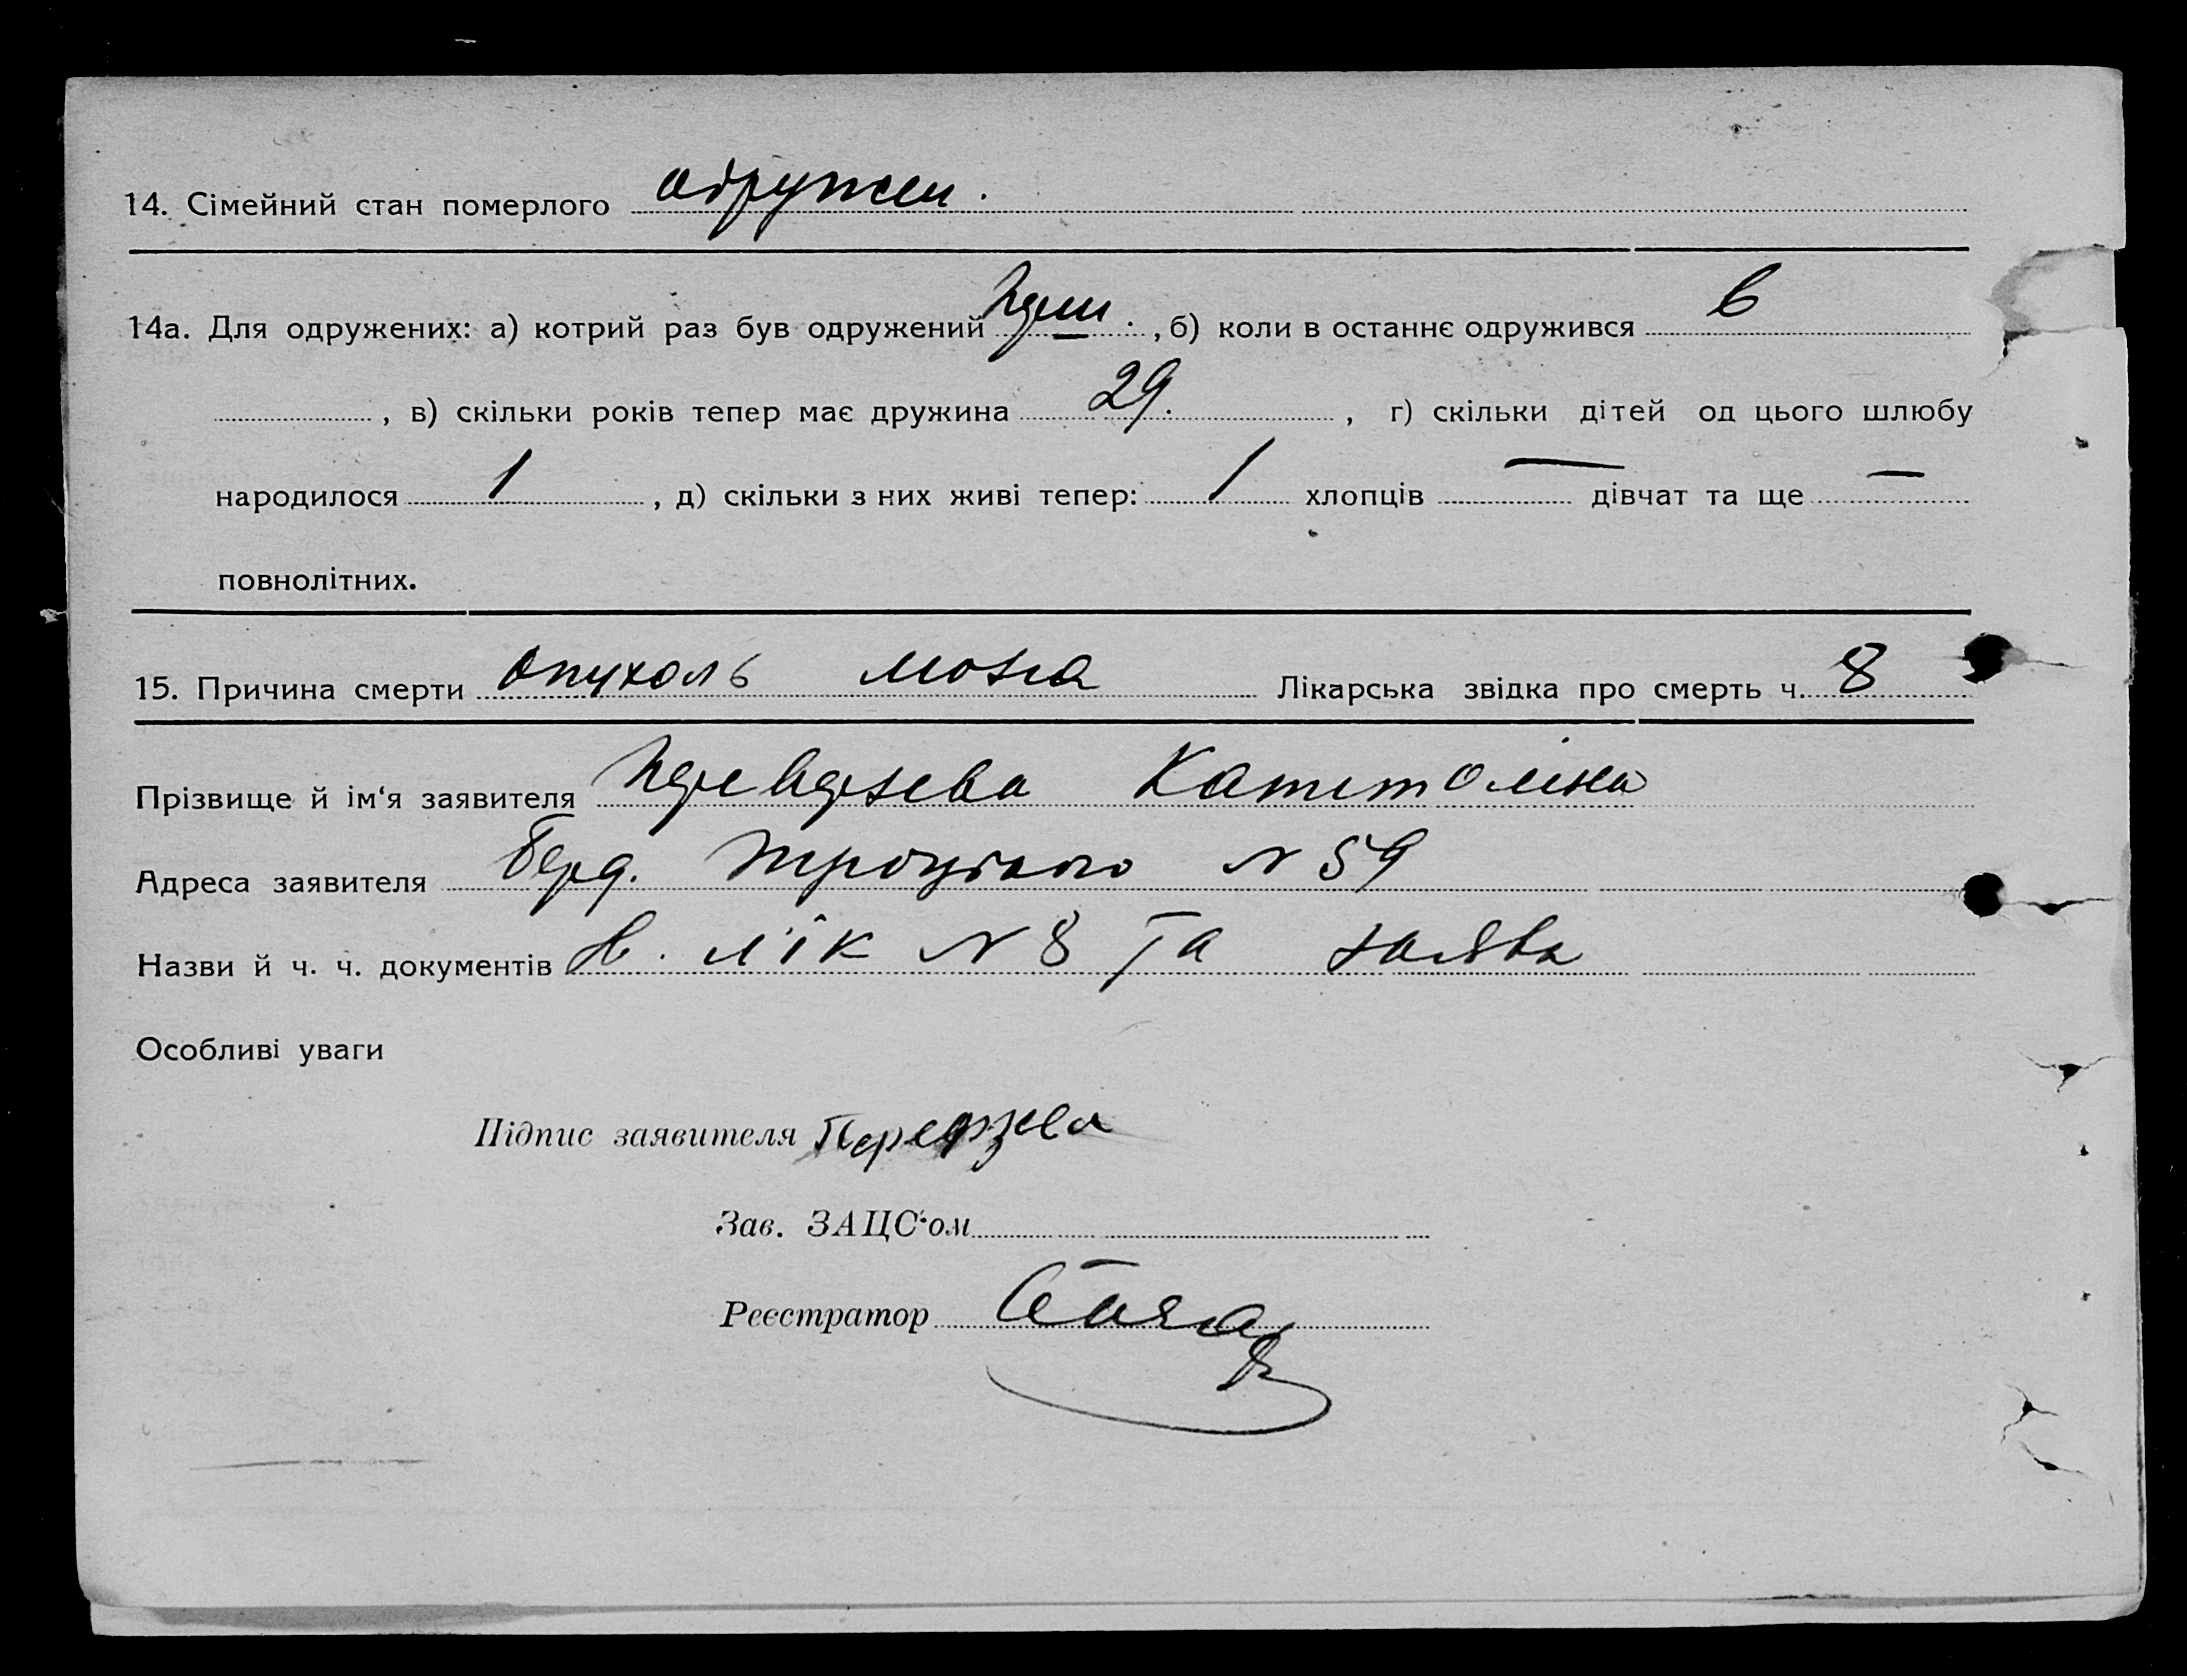 14. Сімейний стан померлого одружен.
14а. Для одружених: а) котрий раз був одружений перш. , б) коли в останнє одружився 6
, в) скільки років тепер має дружина 29. , г) скільки дітей од цього шлюбу
народилося 1 , д) скільки з них живі тепер: 1 хлопців — дівчат та ще —
повнолітних.
15. Причина смерти опухоль мозга Лікарська звідка про смерть ч. 8
Прізвище й ім‘я заявителя Переверзева Капитоліна
Адреса заявителя Берд. Троцького N 59
Назви й ч. ч. документів лік N 8 та заява
Особливі уваги
Підпис заявителя
Зав. ЗАЦС‘ом
Реєстратор